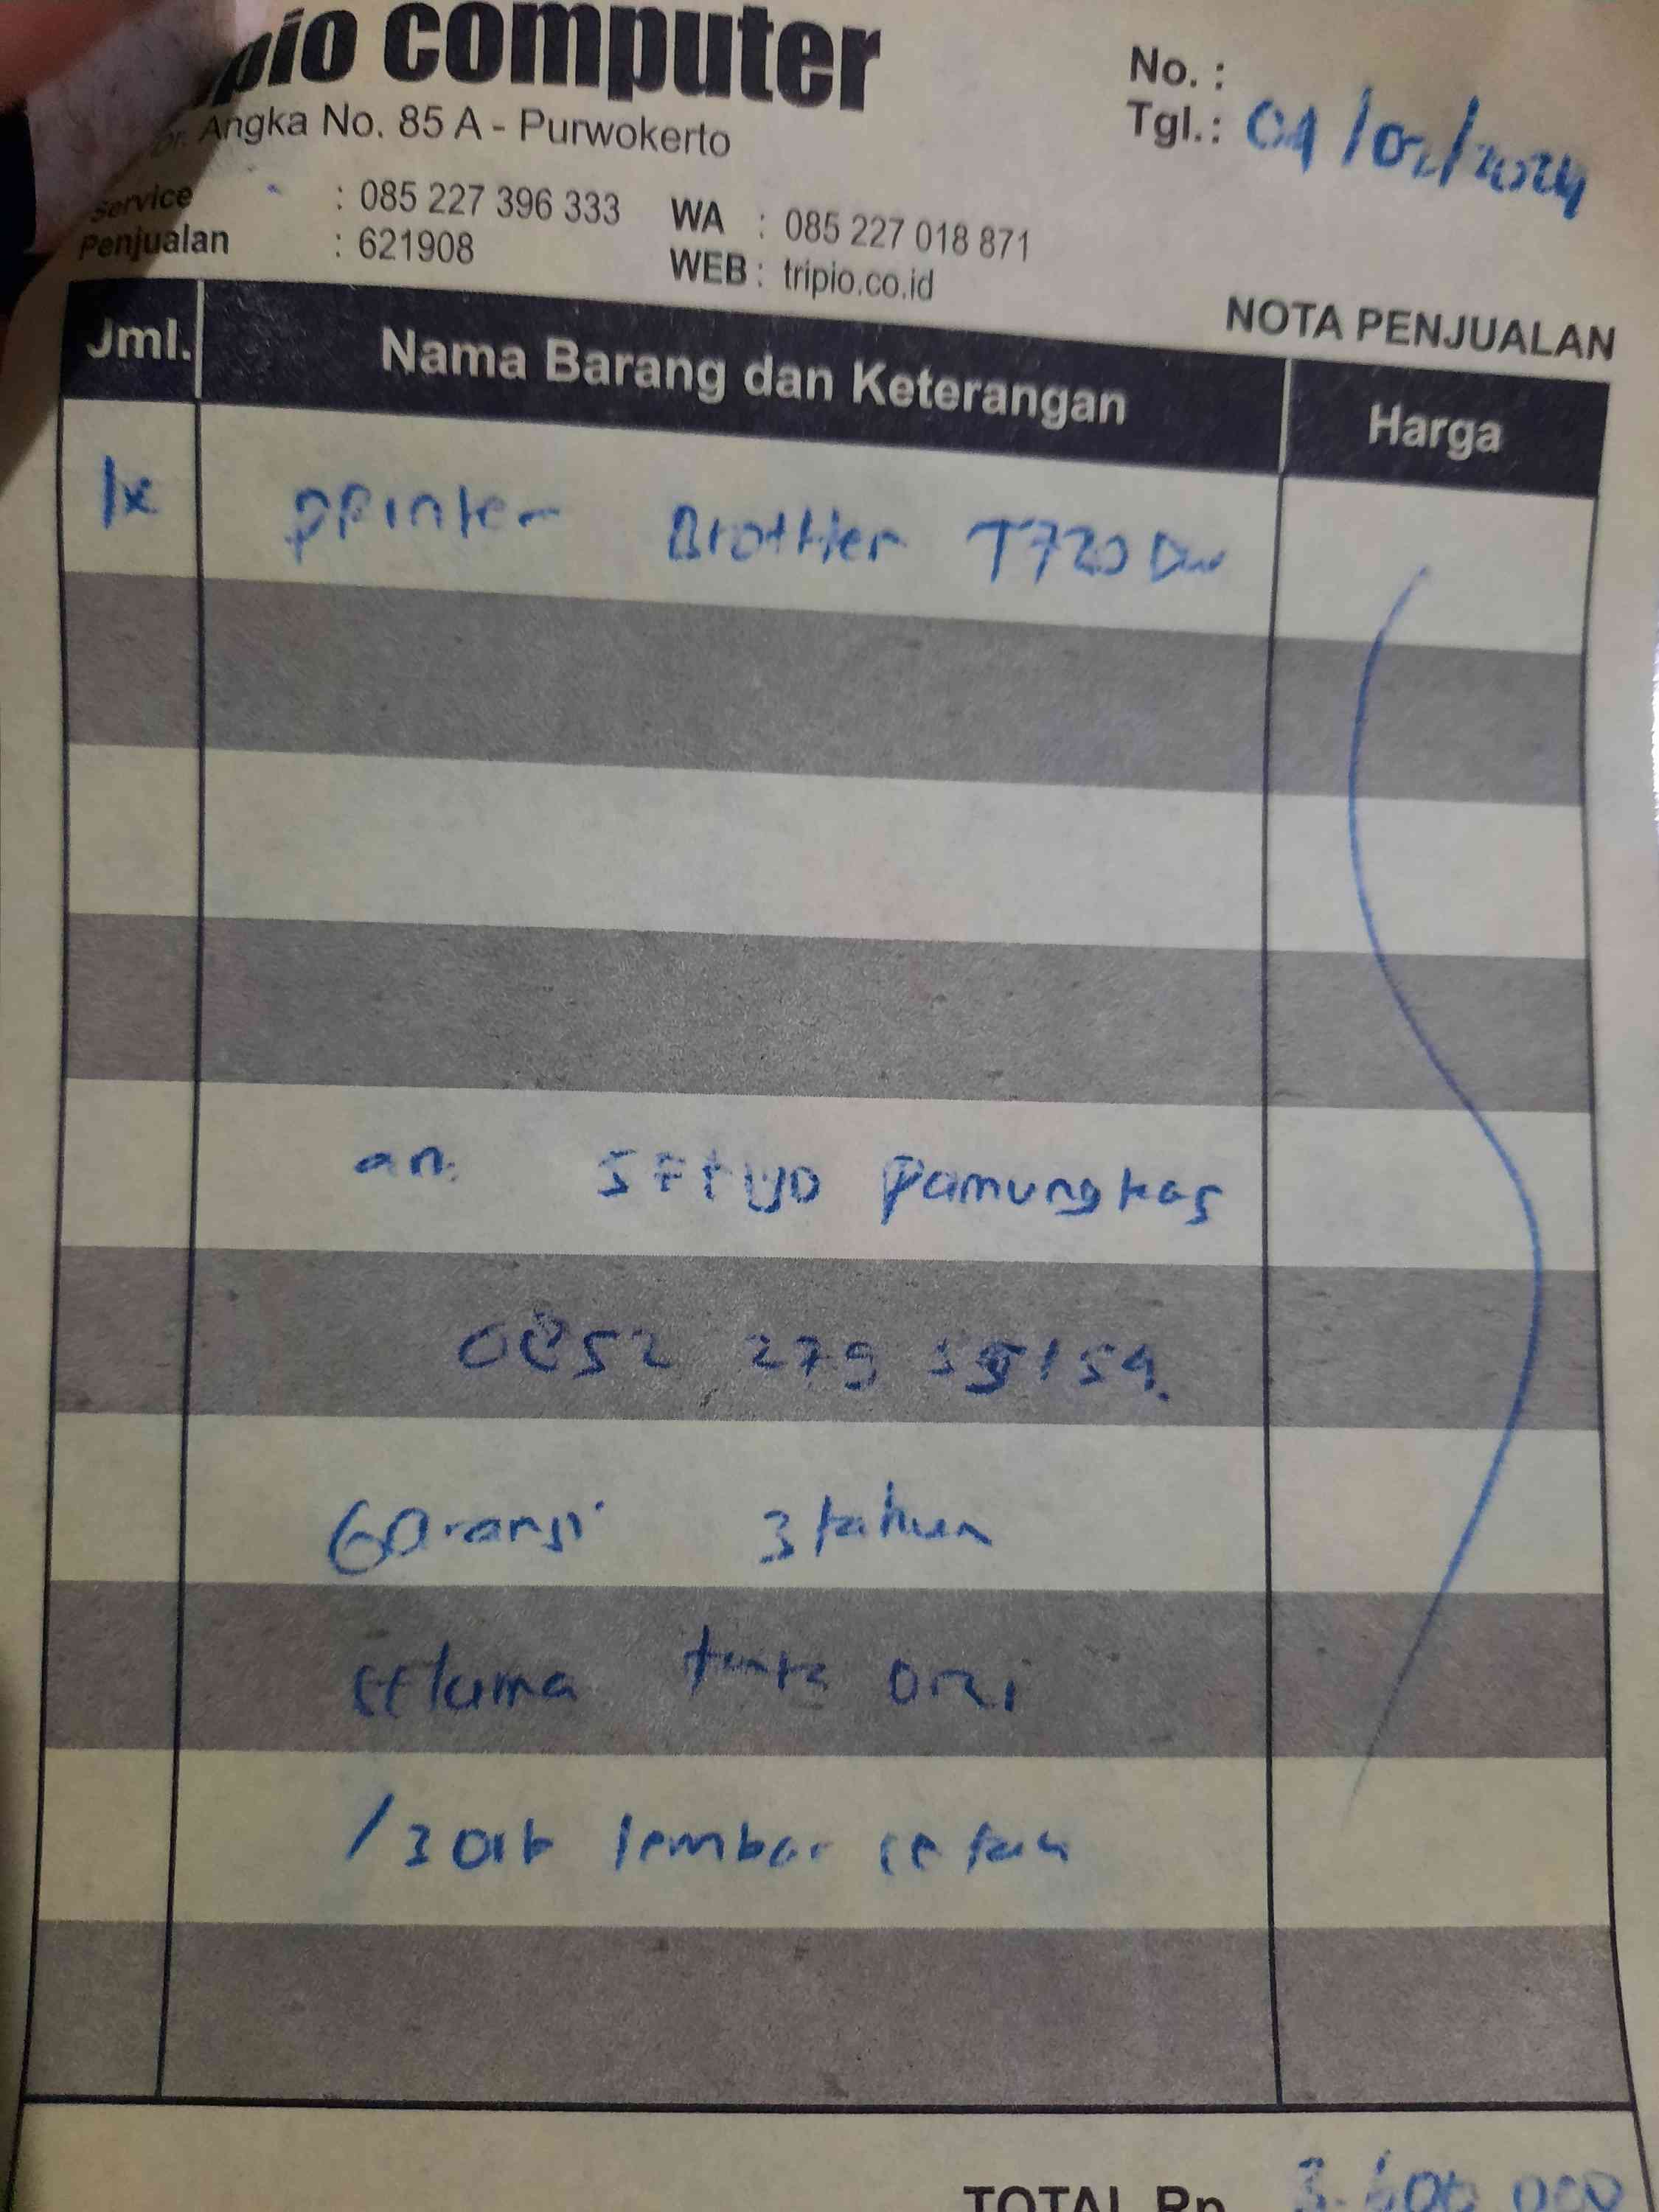 pio computer
No. :
or. Angka No. 85 A - Purwokerto
Tgl.: 01/02/2024
Service : 085 227 396 333 WA : 085 227 018 871
Penjualan : 621908 WEB : tripio.co.id
NOTA PENJUALAN
Jml. Nama Barang dan Keterangan Harga
1x pRinter BrotHer T720DW
an. SEtyo Pamungkas
0852 279
Garansi 3 tahun
selama tinta ori
/30rb lembar cetak
TOTAL Rp